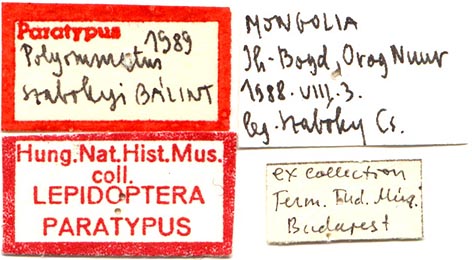 Paratypus
1989
Polyommatus
szabokyi BÁLINT
MONGOLIA
Ih-Bogd, Orog Nuur
1988.VIII.3.
leg. Szaboky Cs.
Hung.Nat.Hist.Mus.
coll.
LEPIDOPTERA
PARATYPUS
ex collection
Term. Tud. Múz.
Budapest